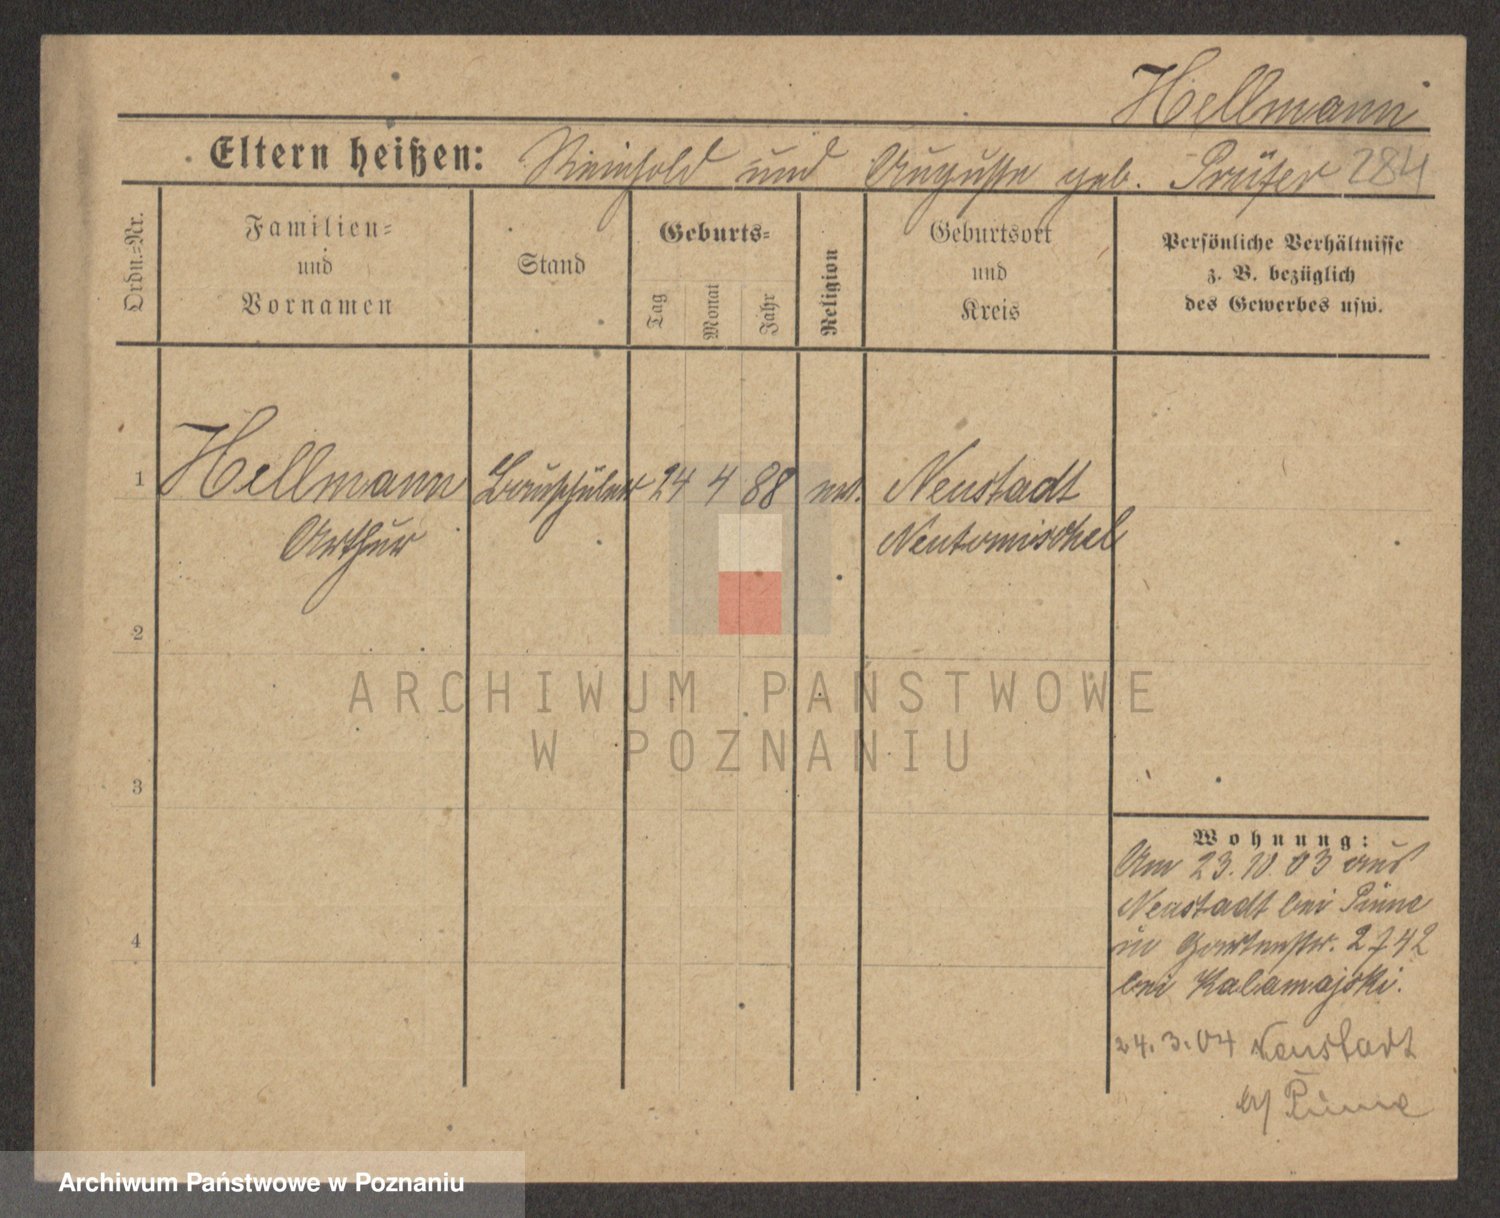 Hellmann
Eltern heißen: Reinhold und Auguste geb. Prüfer 284
Ordn.-Nr.
Familien-
und
Vornamen
Stand
Geburts-
Tag
Monat
Jahr
Religion
Geburtsort
und
Kreis
Persönliche Verhältnisse
z. B. bezüglich
des Gewerbes usw.
1 Hellmann Bauschüler 24 4 88 ev. Neustadt
Arthur Neutomischel
2
3
4
ARCHIWUM PAŃSTWOWE
W POZNANIU
Wohnung:
Am 23.10.03 aus
Neustadt bei Pinne
in Gartenstr. 2
bei Kalamajski.
24.3.04 Neustadt
b/ Pinne
Archiwum Państwowe w Poznaniu